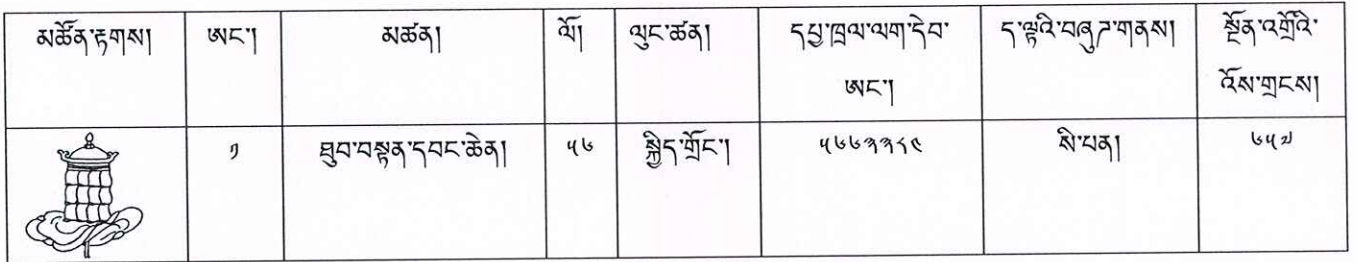 མཚོན་རྟགས། ཨང་། མཚན། ལོ། ལུང་ཚན། དཔྱ་ཁྲལ་ལག་དེབ་ ད་ལྟའི་བཞུགས་གནས། སྔོན་འགྲོའི་
ཨང་། འོས་གྲངས།
༡ ཐུབ་བསྟན་དབང་ཆེན། ༥༦ སྐྱིད་གྲོང་། ༥༦༦༣༣༨༩ སི་པན། ༦༥༧